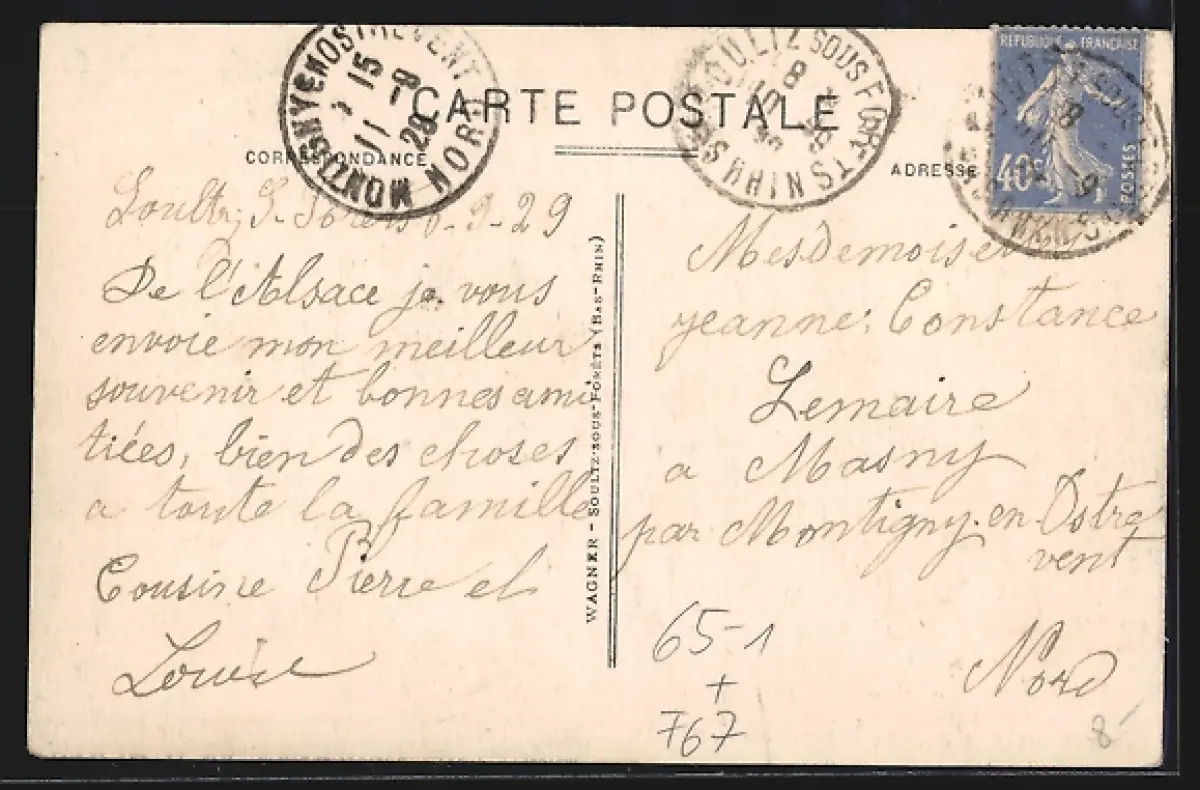 CARTE POSTALE
CORRESPONDANCE
ADRESSE
REPUBLIQUE FRANÇAISE
40c
POSTES
MONTIGNY EN OSTREVENT
NORD
15
11 -9
29
SOULTZ SOUS FORETS
BAS RHIN
8
Soultz, S. Forêts 6-9-29
De l'Alsace je vous
envoie mon meilleur
souvenir et bonnes ami
tiées, bien des choses
a toute la famille
Cousine Pierre et
Louise
WAGNER - SOULTZ-SOUS-FORÊTS (BAS-RHIN)
Mesdemoiselles
jeanne; Constance
Lemaire
a Masny
par Montigny-en-Ostre
vent
Nord
65-1
+
F67
8-